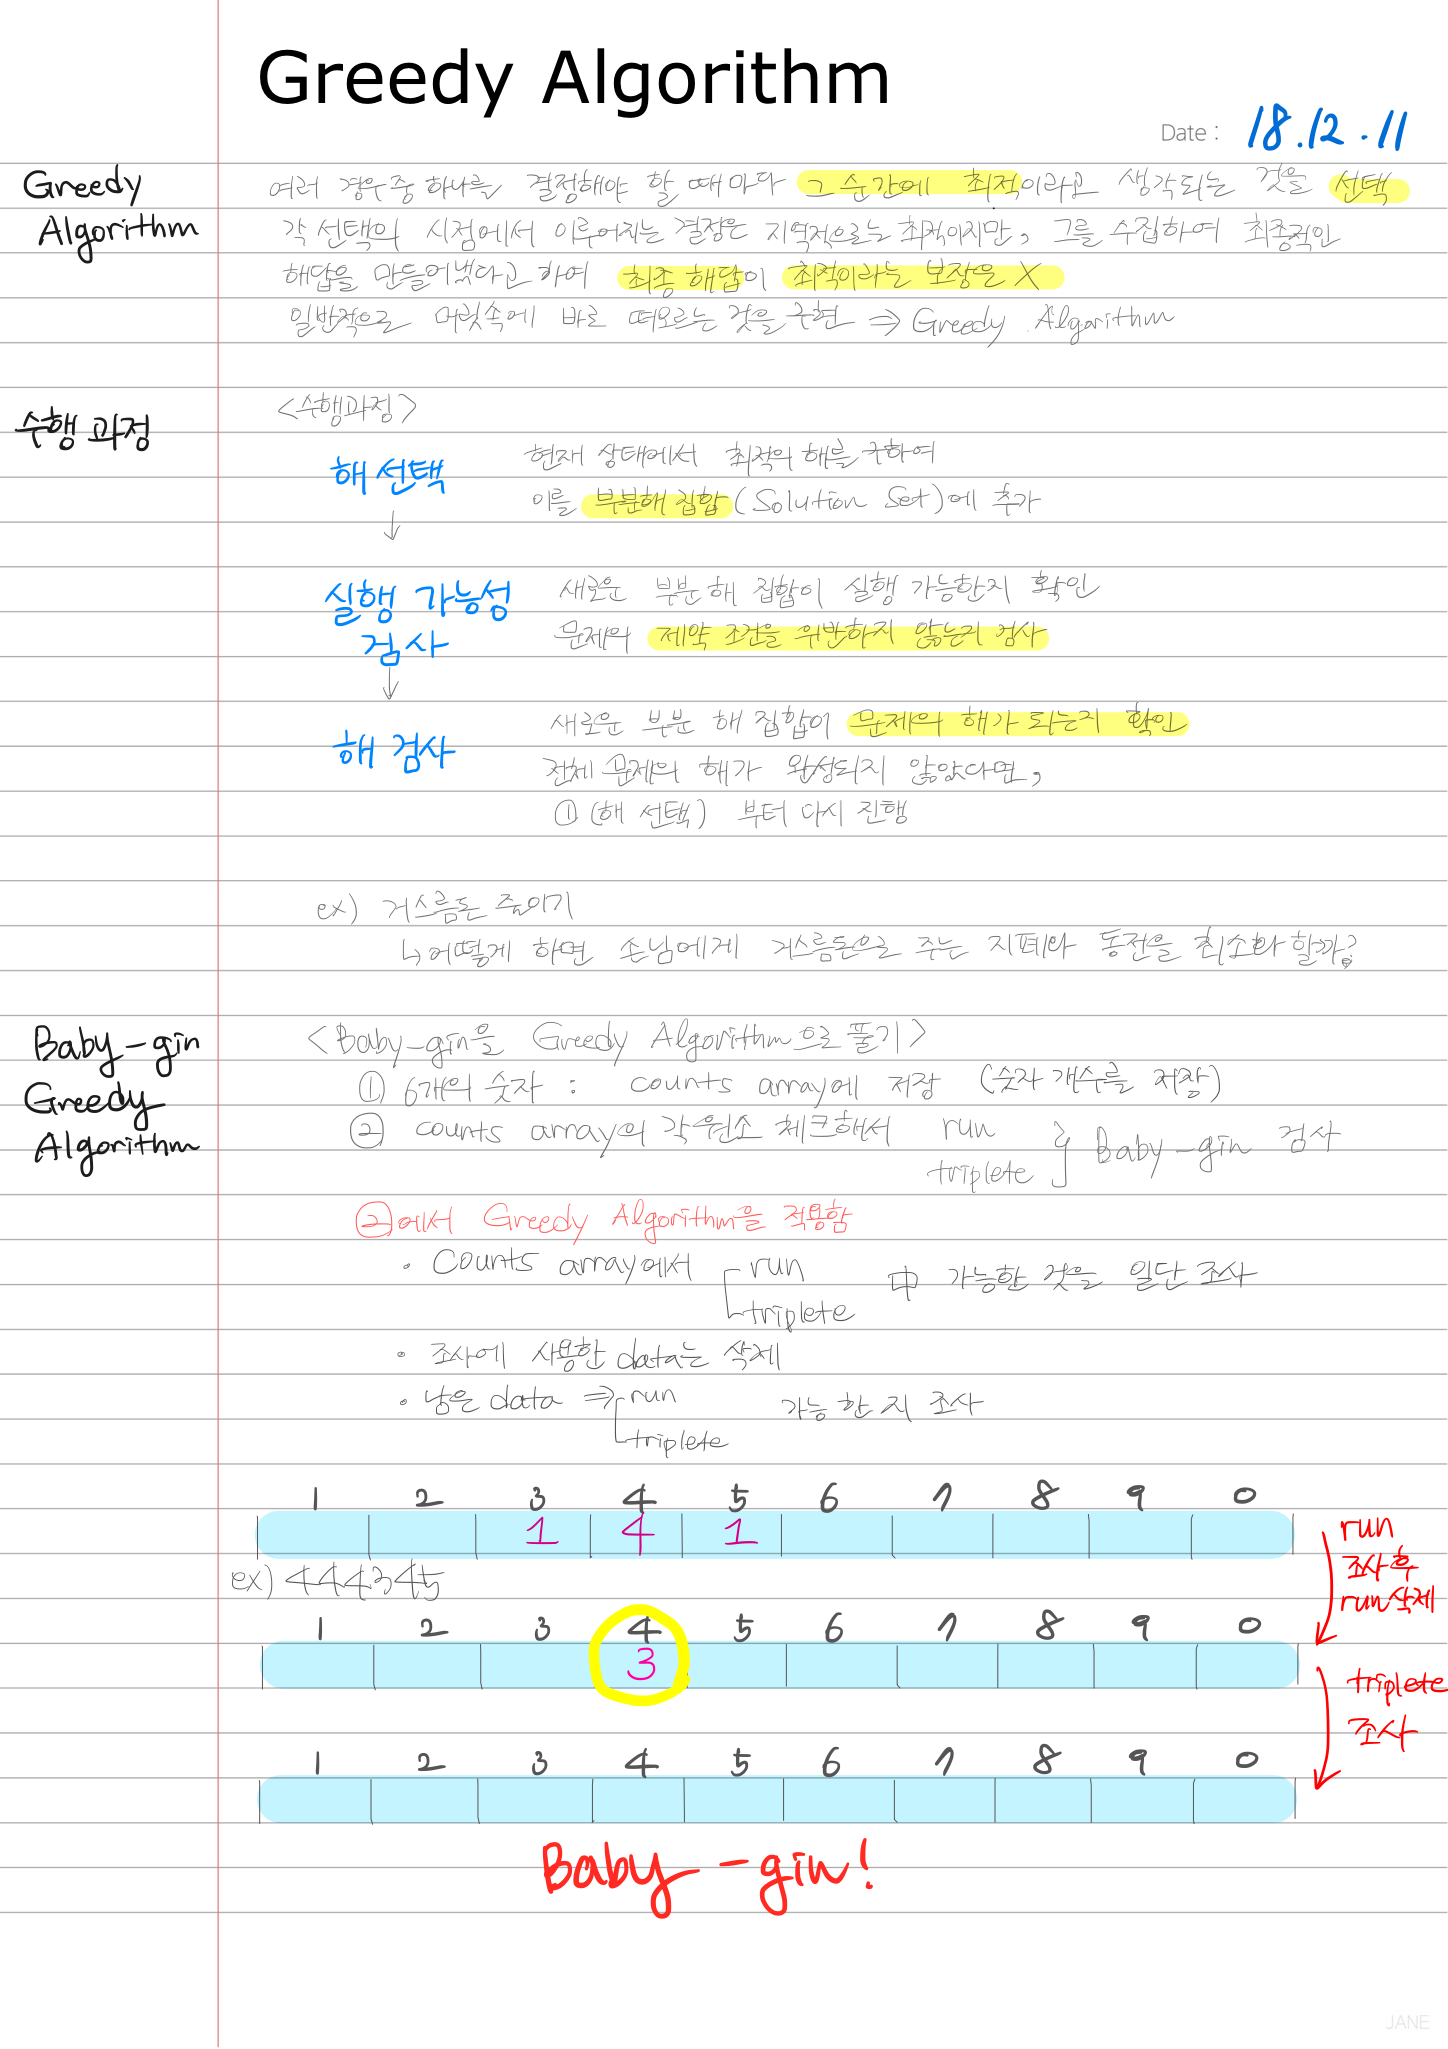 Greedy Algorithm
Date : 18.12.11
Greedy
Algorithm
여러 경우중 하나를 결정해야 할 때마다 그 순간에 최적이라고 생각되는 것을 선택
각 선택의 시점에서 이루어지는 결정은 지역적으로는 최적이지만, 그를 수집하여 최종적인
해답을 만들어냈다고 하여 최종 해답이 최적이라는 보장은 X
일반적으로 머릿속에 바로 떠오르는 것을 구현 ⇒ Greedy Algorithm
수행 과정
<수행과정>
해 선택
현재 상태에서 최적의 해를 구하여
이를 부분해 집합 (Solution Set)에 추가
↓
실행 가능성
검사
새로운 부분 해 집합이 실행 가능한지 확인
문제의 제약 조건을 위반하지 않는지 검사
↓
해 검사
새로운 부분 해 집합이 문제의 해가 되는지 확인
전체 문제의 해가 완성되지 않았다면,
① (해 선택) 부터 다시 진행
ex) 거스름돈 줄이기
↳ 어떻게 하면 손님에게 거스름돈으로 주는 지폐와 동전을 최소화 할까?
Baby-gin
Greedy
Algorithm
<Baby-gin을 Greedy Algorithm으로 풀기>
① 6개의 숫자 : counts array에 저장 (숫자 개수를 저장)
② counts array의 각 원소 체크해서 run
triplete } Baby-gin 검사
②에서 Greedy Algorithm을 적용함
· Counts array에서 run
triplete 中 가능한 것을 일단 조사
· 조사에 사용한 data는 삭제
· 남은 data ⇒ run
triplete 가능한지 조사
1 2 3 4 5 6 7 8 9 0
1 4 1
ex) 444345
run
조사 후
run 삭제
1 2 3 4 5 6 7 8 9 0
3
triplete
조사
1 2 3 4 5 6 7 8 9 0
Baby-gin!
JANE